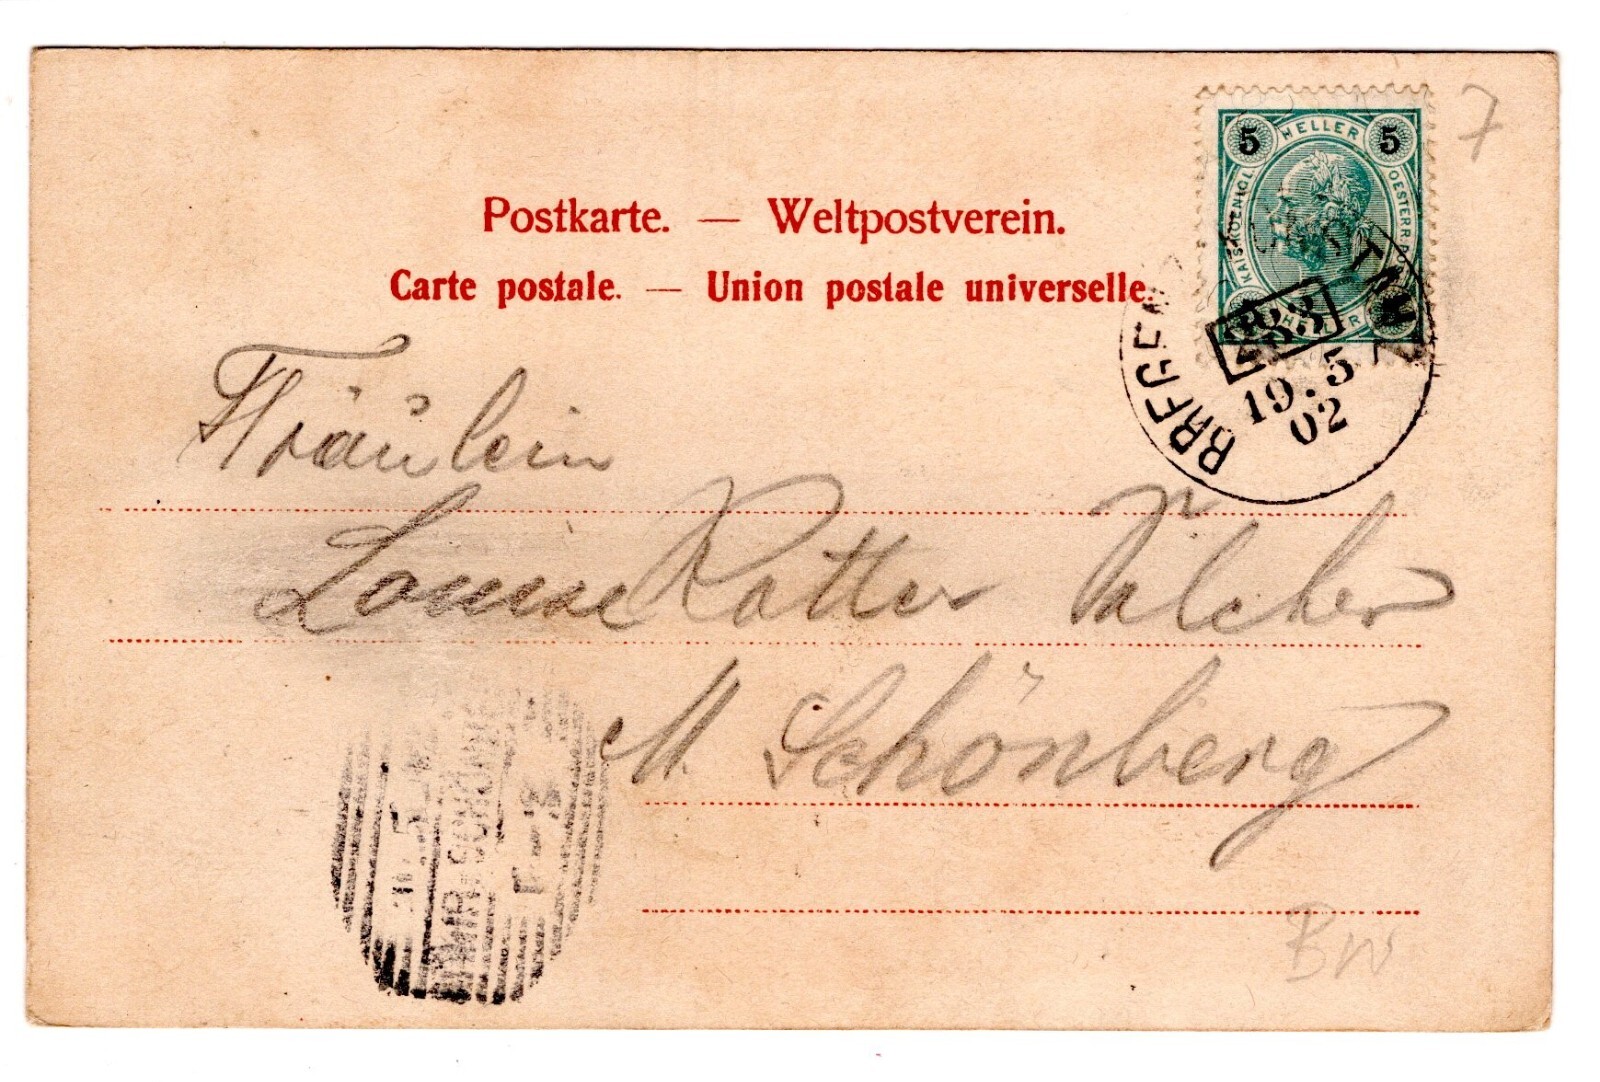 7
5 HELLER 5
KAIS. KOENIGL.
OESTERR.
HELLER
Postkarte. — Weltpostverein.
Carte postale. — Union postale universelle.
283
19. 5
02
Fräulein
Louise Rotter
M. Schönberg
BW